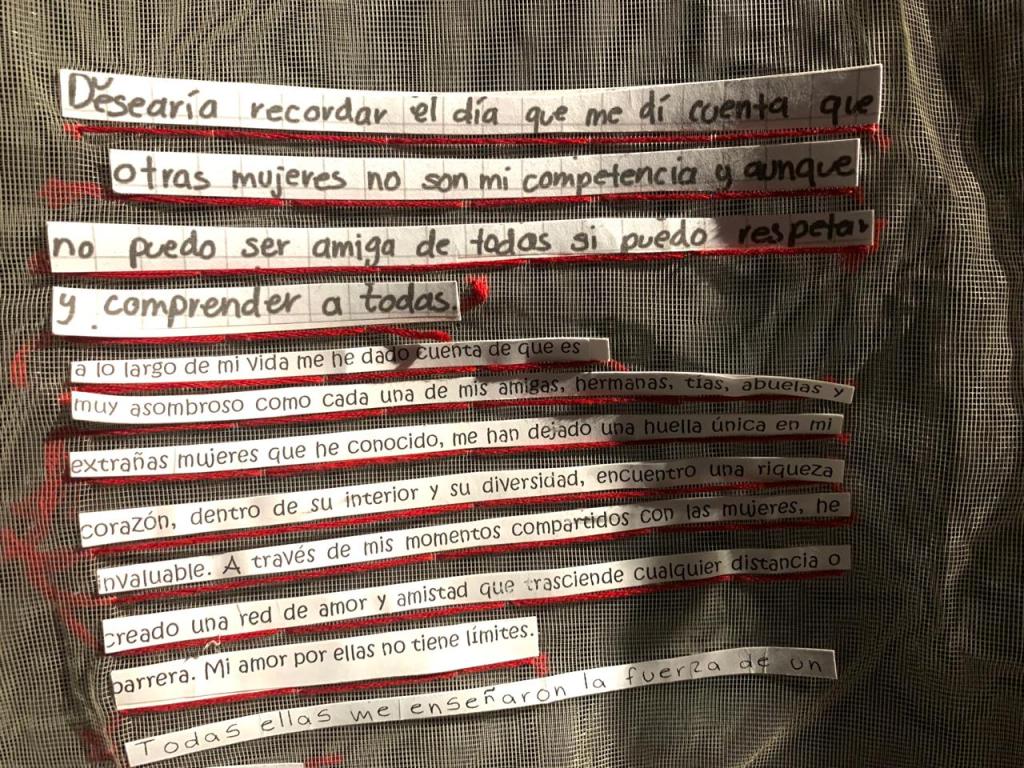 Desearía recordar el día que me dí cuenta que
otras mujeres no son mi competencia y aunque
no puedo ser amiga de todas si puedo respetar
y comprender a todas.
a lo largo de mi vida me he dado cuenta de que es
muy asombroso como cada una de mis amigas, hermanas, tías, abuelas y
extrañas mujeres que he conocido, me han dejado una huella única en mi
corazón, dentro de su interior y su diversidad, encuentro una riqueza
invaluable. A través de mis momentos compartidos con las mujeres, he
creado una red de amor y amistad que trasciende cualquier distancia o
barrera. Mi amor por ellas no tiene límites.
Todas ellas me enseñaron la fuerza de un